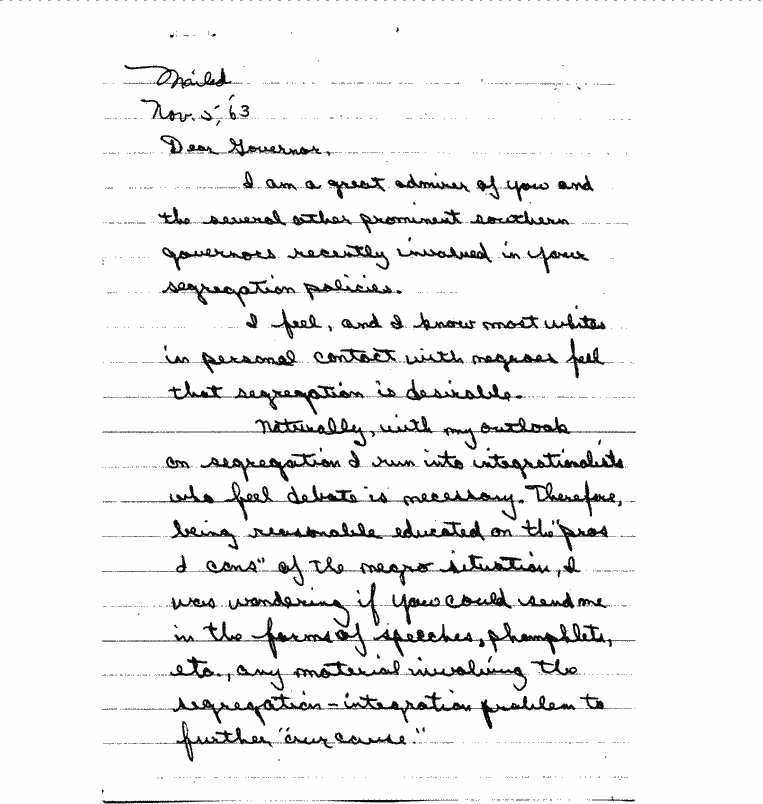 Mailed
Nov. 5, '63
Dear Governor,
I am a great admirer of you and
the several other prominent southern
governors recently involved in your
segregation policies.
I feel, and I know most whites
in personal contact with negroes feel
that segregation is desirable.
Naturally, with my outlook
on segregation I run into integrationalists
who feel debate is necessary. Therefore,
being reasonable educated on the "pros
& cons" of the negro situation, I
was wondering if you could send me
in the forms of speeches, phamphlets,
etc., any material involving the
segregation-integration problem to
further "our cause."